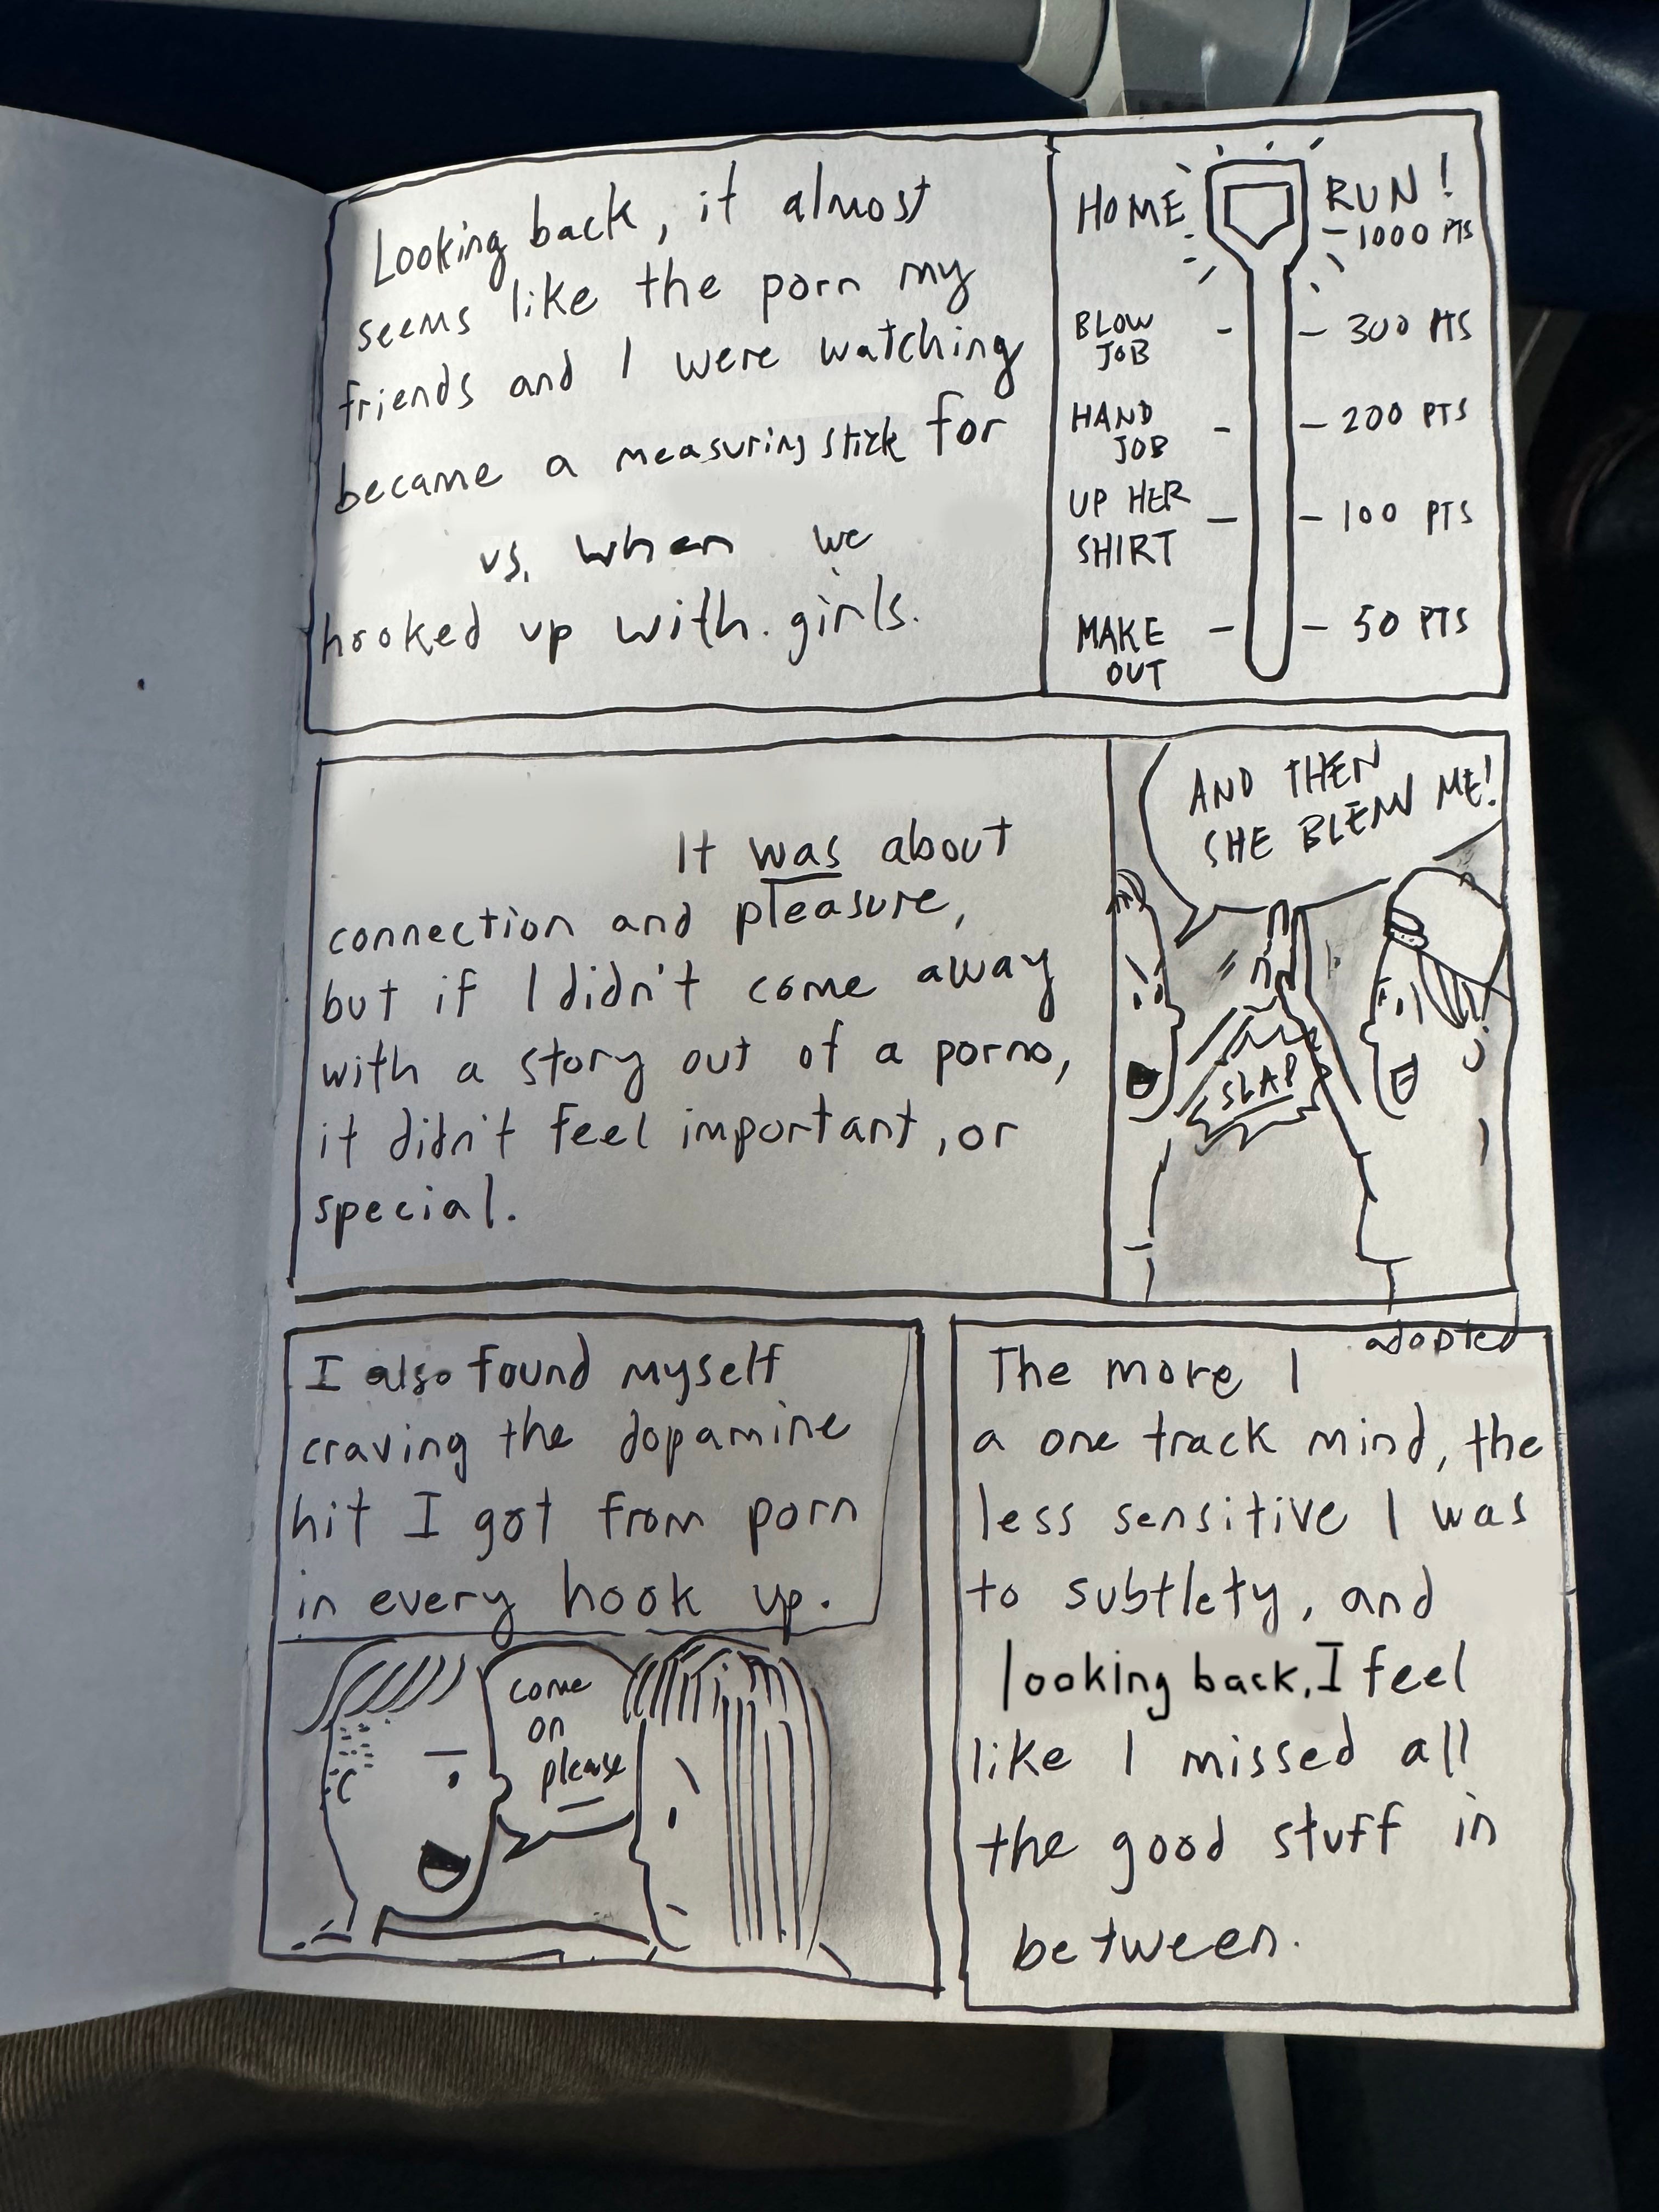 Looking back, it almost
seems like the porn my
friends and I were watching
became a measuring stick for
vs. when we
hooked up with. girls.
HOME RUN!
- 1000 PTS
BLOW
JOB - - 300 PTS
HAND
JOB - - 200 PTS
UP HER
SHIRT - - 100 PTS
MAKE
OUT - - 50 PTS
It was about
connection and pleasure,
but if I didn't come away
with a story out of a porno,
it didn't feel important, or
special.
AND THEN
SHE BLEW ME!
SLAP
I also found myself
craving the dopamine
hit I got from porn
in every hook up.
come
on
please
The more I adopted
a one track mind, the
less sensitive I was
to subtlety, and
looking back, I feel
like I missed all
the good stuff in
between.